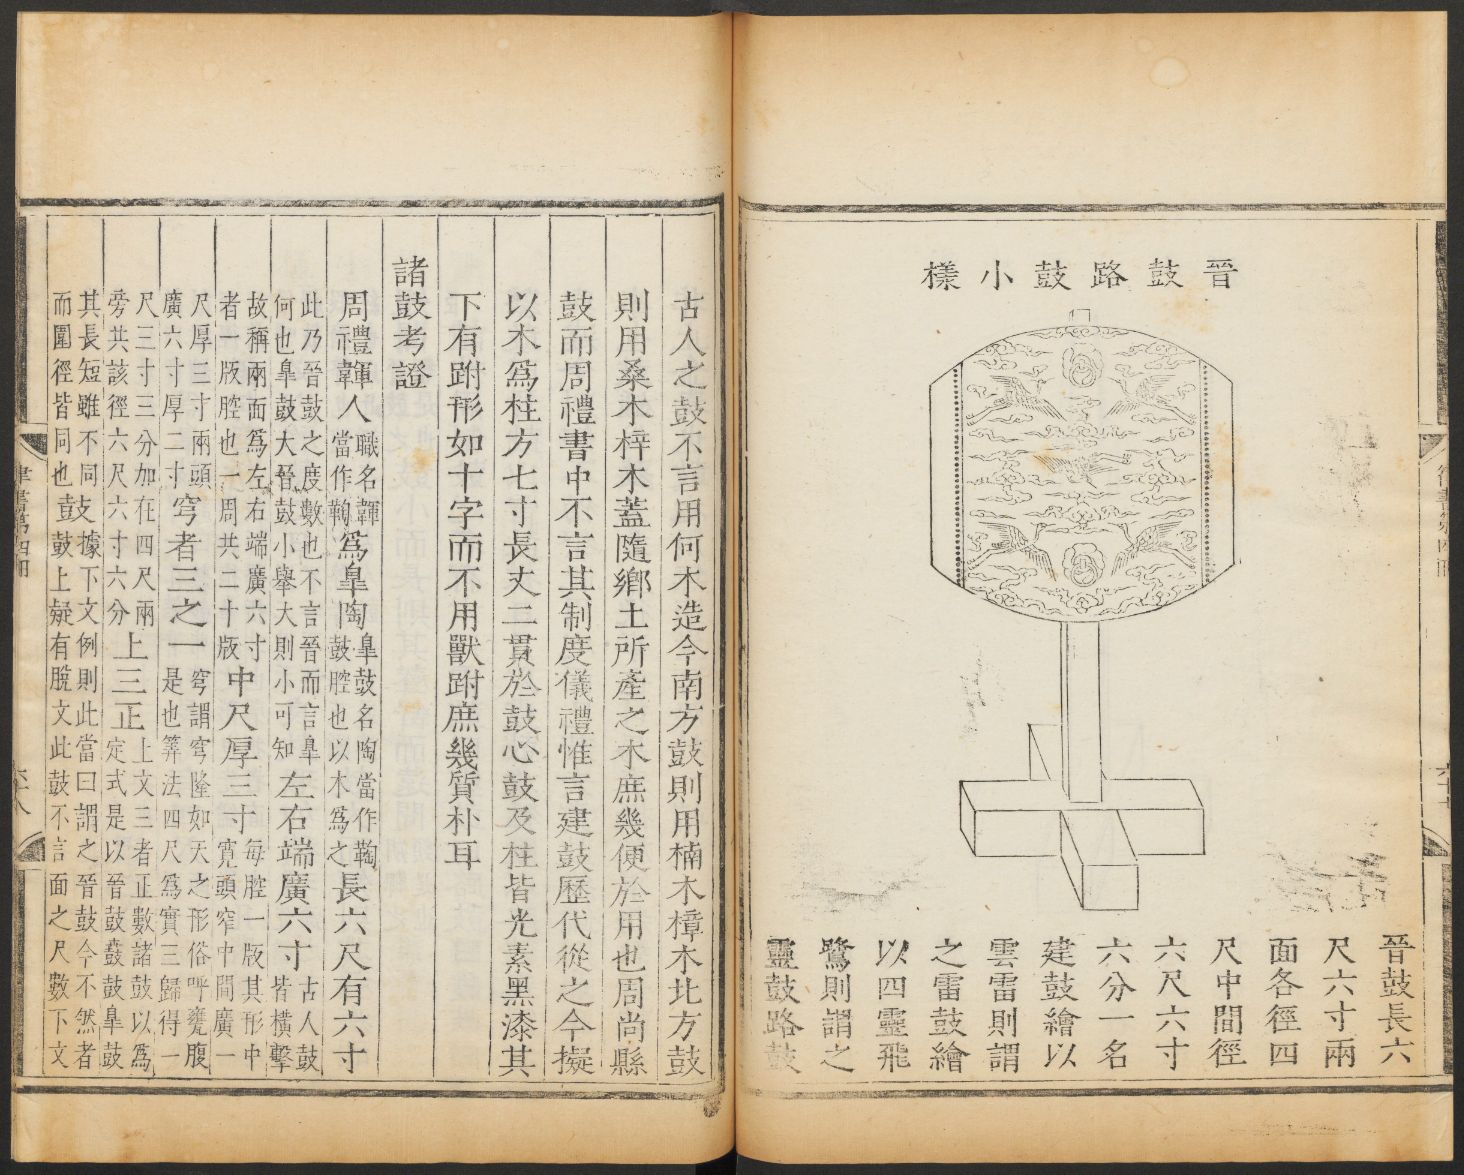 晉鼓路鼓小樣
晉鼓長六
尺六寸兩
面各徑四
尺中間徑
六尺六寸
六分一名
建鼓繪以
雲雷則謂
之雷鼓繪
以四靈飛
鷺則謂之
靈鼓路鼓
古人之鼓不言用何木造今南方鼓則用楠木樟木北方鼓
則用桑木梓木蓋隨鄉土所產之木庶幾便於用也周尚縣
鼓而周禮書中不言其制度儀禮惟言建鼓歷代從之今擬
以木爲柱方七寸長丈二貫於鼓心鼓及柱皆光素黑漆其
下有跗形如十字而不用獸跗庶幾質朴耳
諸鼓考證
周禮韗人職名韗當作鞠爲臯陶臯鼓名陶當作鞠鼓腔也以木爲之長六尺有六寸
此乃晉鼓之度數也不言晉而言臯何也臯鼓大晉鼓小舉大則小可知左右端廣六寸古人鼓皆橫擊
故稱兩面爲左右端廣六寸者一版腔也一周共二十版中尺厚三寸每腔一版其形中寬頭窄中間廣一
尺厚三寸兩頭廣六寸厚二寸穹者三之一穹謂穹隆如天之形俗呼甕腹是也筭法四尺爲實三歸得一
尺三寸三分加在四尺兩旁共該徑六尺六寸六分上三正上文三者正數諸鼓以爲定式是以晉鼓鼖鼓臯鼓
其長短雖不同而圍徑皆同也鼓據下文例則此當曰謂之晉鼓今不然者鼓上疑有脫文此鼓不言面之尺數下文